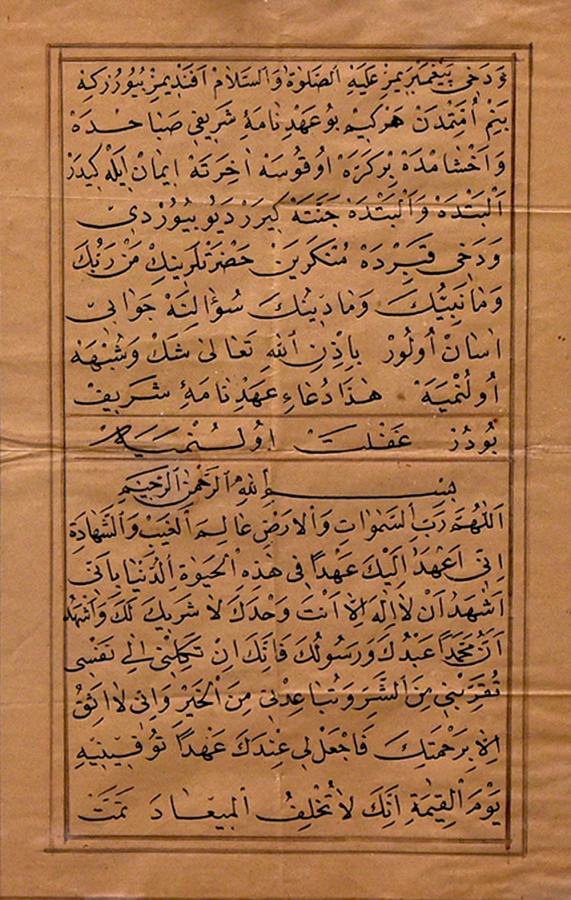 وَدَخِى پَيْغَمْبَرِيمِزْ عَلَيْهِ الصَّلٰوةُ وَالسَّلَامْ اَفَنْدِيمِزْ بُيُورُرْكِهْ
بَنِمْ اُمَّتِمْدَنْ هَرْكِيمْ بُو عَهْدِنَامَهٔ شَرِيفِى صَبَاحْدَهْ
وَاَخْشَامْدَهْ بِرْكَرَّهْ اُوقُوسَهْ اٰخِرَتَهْ اِيمَانْ اِيلَهْ كِيدَرْ
اَلْبَتْدَهْ وَاَلْبَتْدَهْ جَنَّتَهْ كِيرَرْ دَيُو بُيُورْدِى
وَدَخِى قَبِرْدَهْ مُنْكَرِينْ حَضْرَتْلَرِينِكْ مَنْ رَبُّكَ
وَمَا نَبِيُّكَ وَمَا دِينُكَ سُؤَالِنَهْ جَوَابِى
اٰسَانْ اُولُورْ بِاِذْنِ اللّٰهِ تَعَالٰى شَكْ وَشُبْهَهْ
اُولُنْمَيَهْ هٰذَا دُعَاءِ عَهْدِنَامَهٔ شَرِيفْ
بُودُرْ غَفْلَتْ اُولُنْمَيَهْ
بِسْمِ اللّٰهِ الرَّحْمٰنِ الرَّحِيمِ
اَللّٰهُمَّ رَبَّ السَّمٰوَاتِ وَالْاَرْضِ عَالِمَ الْغَيْبِ وَالشَّهَادَةِ
اِنِّى اَعْهَدُ اِلَيْكَ عَهْدًا فِى هٰذِهِ الْحَيٰوةِ الدُّنْيَا بِاَنِّى
اَشْهَدُ اَنْ لَا اِلٰهَ اِلَّا اَنْتَ وَحْدَكَ لَا شَرِيكَ لَكَ وَاَشْهَدُ
اَنَّ مُحَمَّدًا عَبْدُكَ وَرَسُولُكَ فَاِنَّكَ اِنْ تَكِلْنِى اِلٰى نَفْسِى
تُقَرِّبْنِى مِنَ الشَّرِّ وَتُبَاعِدْنِى مِنَ الْخَيْرِ وَاِنِّى لَا اَثِقُ
اِلَّا بِرَحْمَتِكَ فَاجْعَلْ لِى عِنْدَكَ عَهْدًا تُوَفِّينِيهِ
يَوْمَ الْقِيٰمَةِ اِنَّكَ لَا تُخْلِفُ الْمِيعَادَ تَمَّتْ